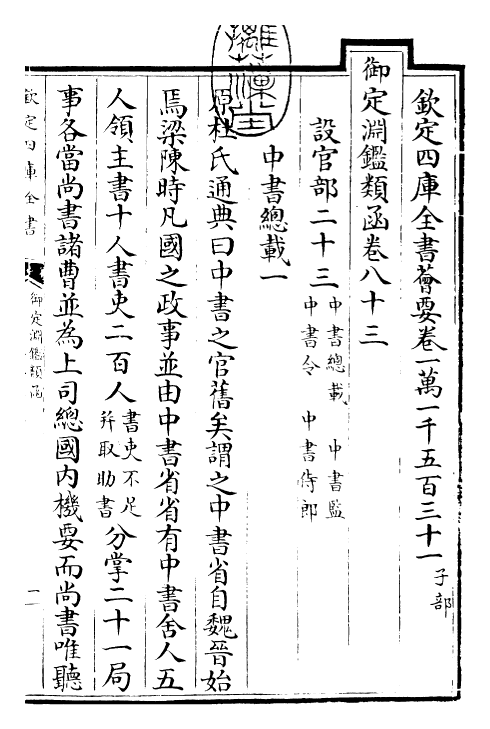 欽定四庫全書薈要卷一萬一千五百三十一 子部
御定淵鑑類函卷八十三
設官部二十三 中書總載 中書監 中書令 中書侍郎
中書總載一
原杜氏通典曰中書之官舊矣謂之中書省自魏晉始
焉梁陳時凡國之政事並由中書省省有中書舍人五
人領主書十人書吏二百人書吏不足并取助書分掌二十一局
事各當尚書諸曹並為上司總國內機要而尚書唯聽
欽定四庫全書
御定淵鑑類函
一